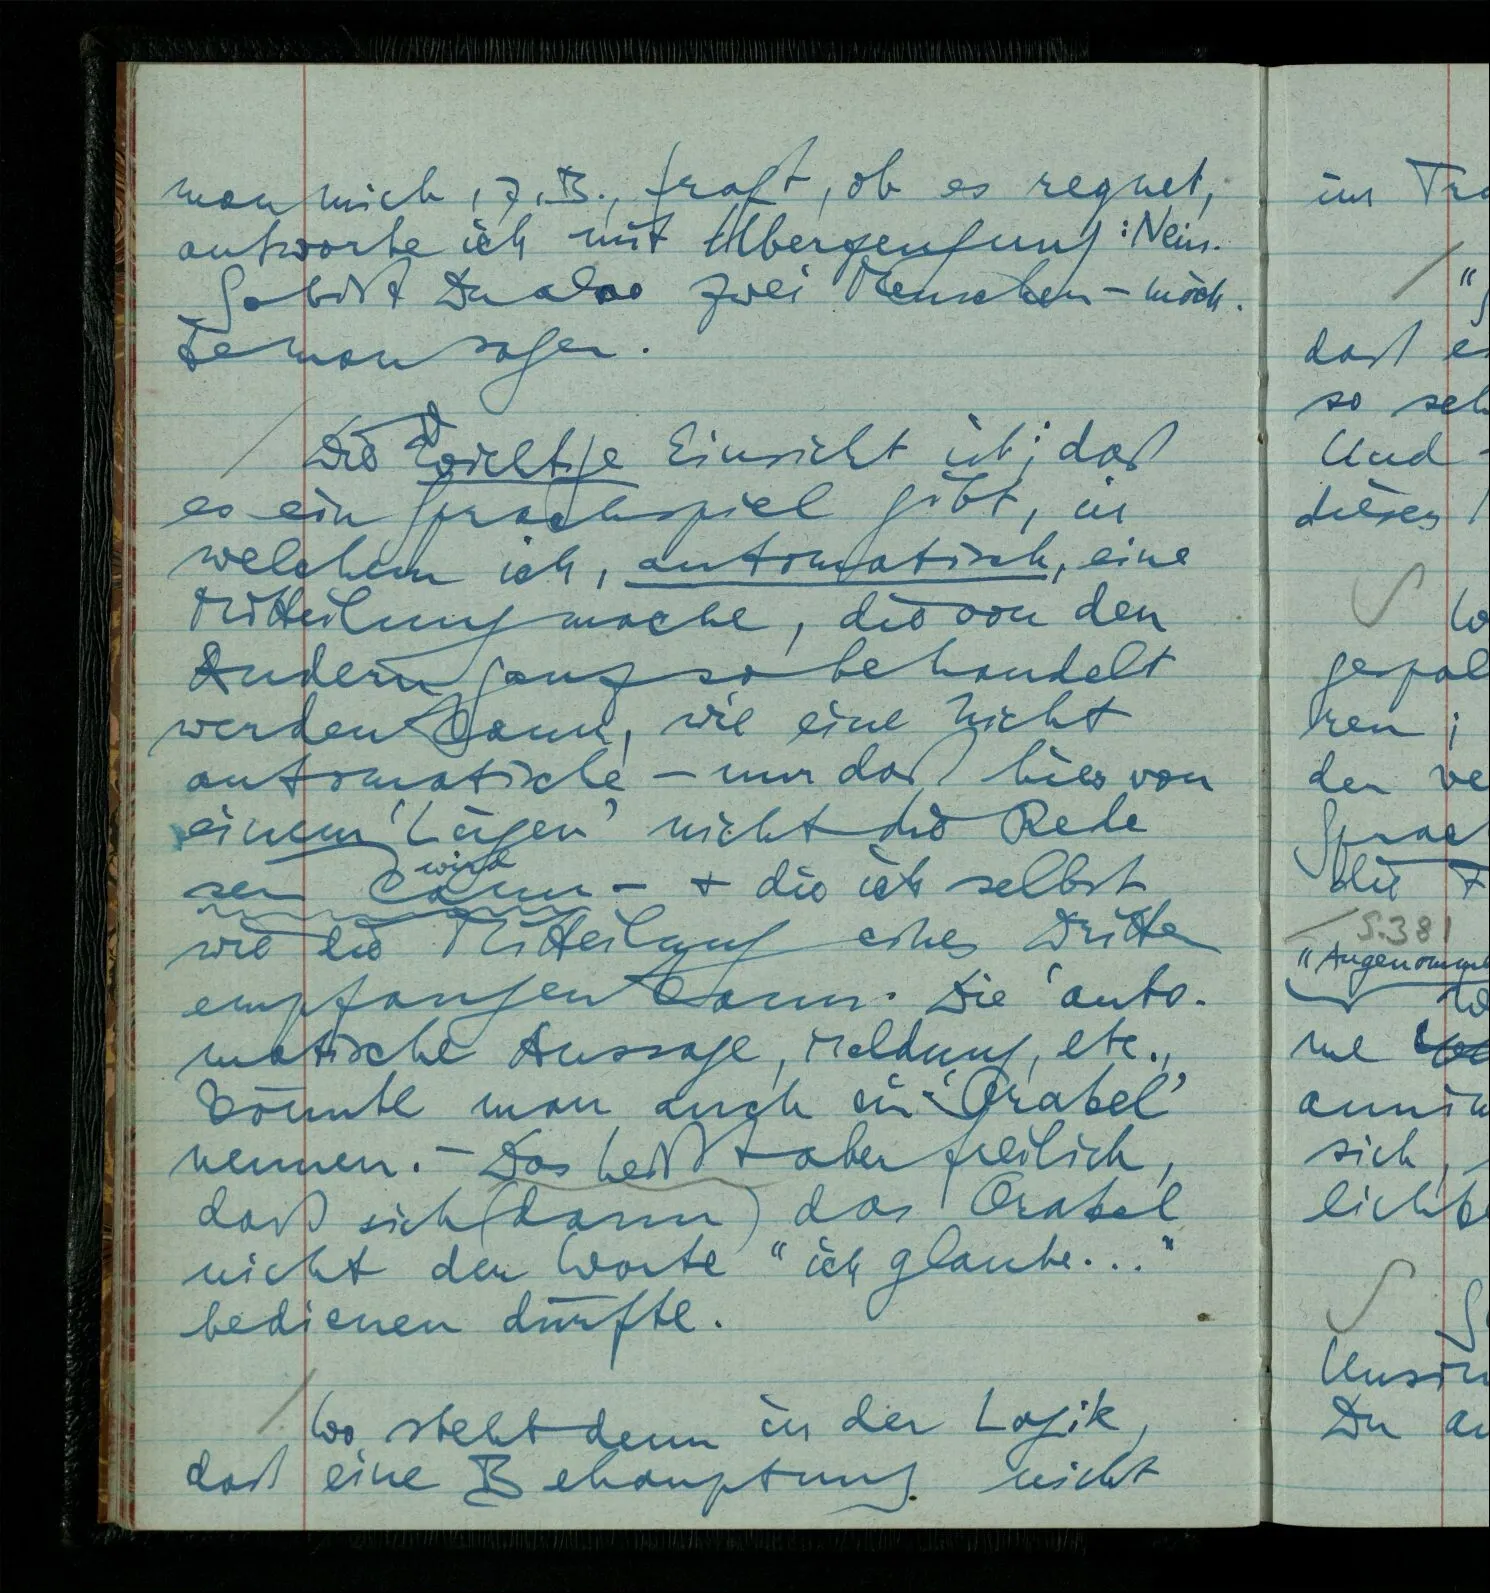 man mich, z.B., fragt, ob es regnet,
antworte ich mit Überzeugung: Nein.
So bist Du also zwei Menschen – möch-
te man sagen.
/ Die wichtige Einsicht ist, daß
es ein Sprachspiel gibt, in
welchem ich, automatisch, eine
Mitteilung mache, die von den
Andern ganz so behandelt
werden kann, wie eine nicht
automatische – nur daß hier von
einem ‘Lügen’ nicht die Rede
wird
sein kann – + die ich selbst
wie die Mitteilung eines Dritten
empfangen kann. Die ‘auto-
matische Aussage, Meldung, etc.,
könnte man auch ein ‘Orakel’
nennen. – Das heißt aber freilich,
daß sich (dann) das Orakel
nicht der Worte “ich glaube...”
bedienen dürfte.
/ Wo steht denn in der Logik,
daß eine Behauptung nicht
im
/ “
daß
so
Und
dieses
gespal
ren ;
den
/ S. 381
“Angenomme
me
sich,
Du